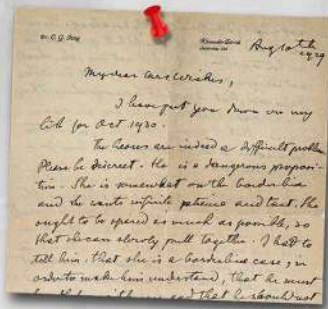 Dr. C. G. Jung
Küsnacht-Zürich
Aug 10th
1929
My dear Miss Wickes,
I have put you down on my
list for Oct 1930.
The are indeed a difficult problem
Please be discreet. He is a dangerous proposi-
tion. She is somewhat on the borderline
and she wants infinite patience and tact. She
ought to be spared as much as possible, so
that she can slowly pull together. I had to
tell him, that she is a borderline case, in
order to make him understand, that he must
and that he should not